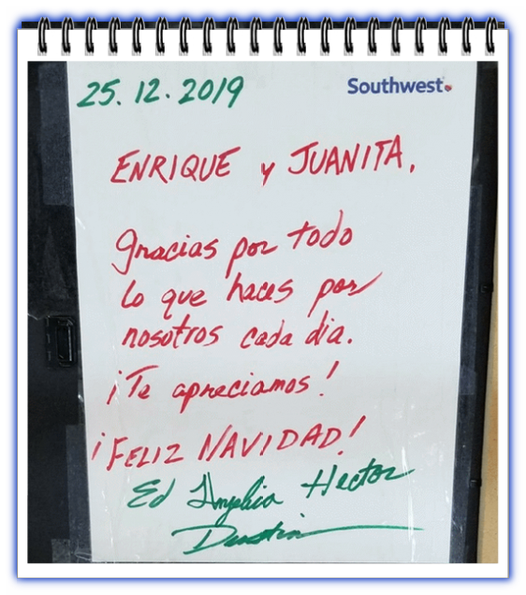 25.12.2019
Southwest
ENRIQUE y JUANITA,
Gracias por todo
lo que haces por
nosotros cada dia.
¡Te apreciamos!
¡FELIZ NAVIDAD!
Ed Hector
Dustin